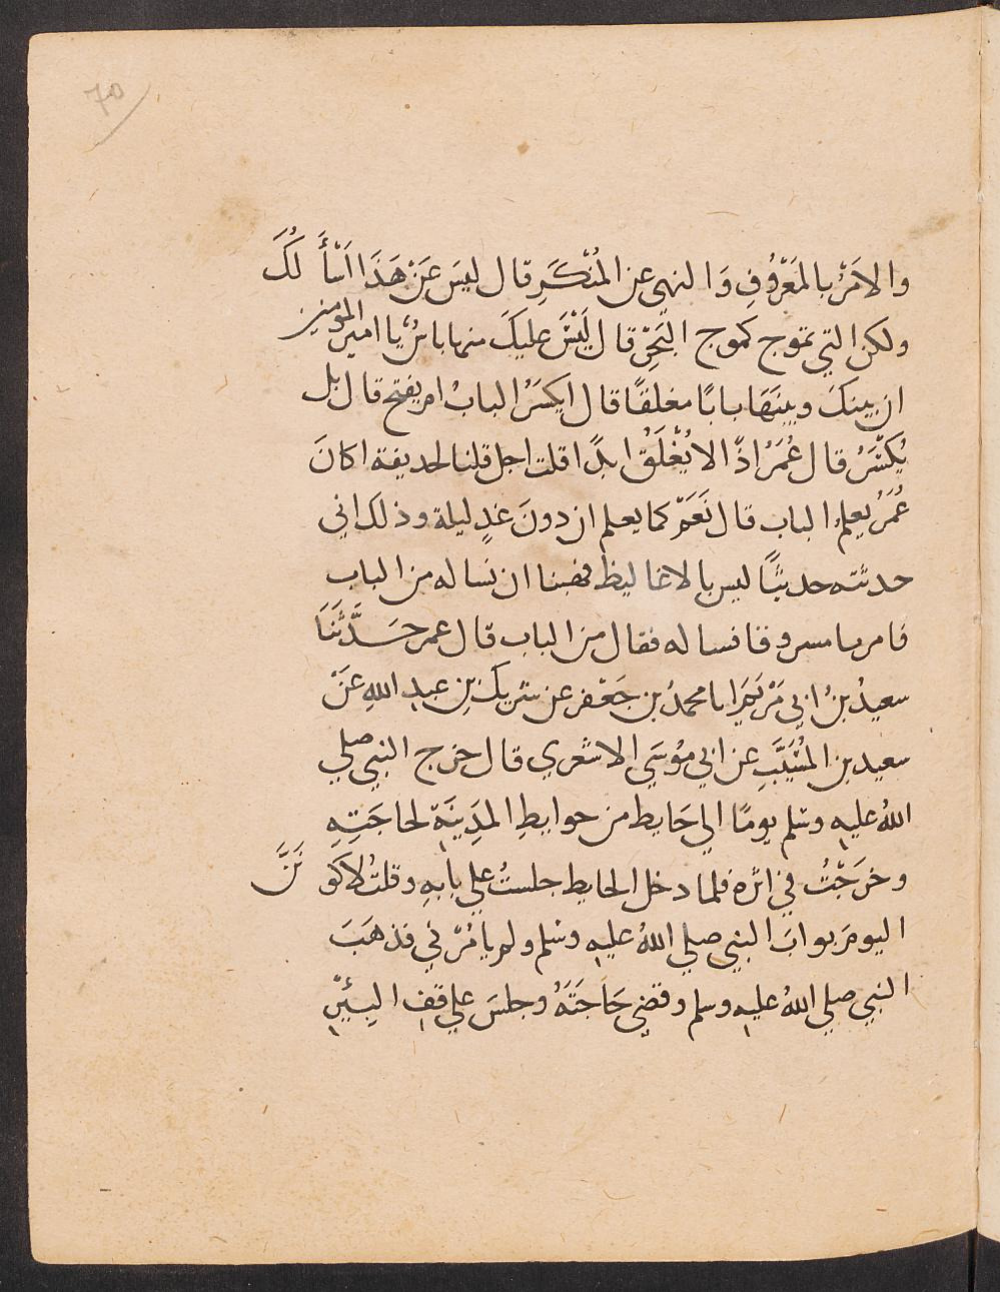 70
والامَرْ بالمَعَرْوُفِ وَالنهى عن المُنْكَرِ قال ليسَ عَنْ هَذَا اَسْأَلُكَ
ولكن التي تموج كموج البَحْرِ قال لَيْسَ عليكَ منها باسٌ يا امير المومنين
ان بينكَ وبينَهَا بابًا مغلقًا قال ايكسَرُ البابُ ام يفتح قال بل
يُكَسَّرُ قال عُمَرُ اذًا لا يُغْلَقُ ابدًا قلت اجل قلنا لحديفة اكانَ
عُمَرُ يعلمُ الباب قال نَعَمْ كما يعلم ان دونَ غدٍ ليلة وذلك اني
حدثته حديثًا ليس بالاغاليظ فهبنا ان نساله من الباب
فامرنا مسروقا فساله فقال من الباب قال عمر حَدَّثَنَا
سعيدُ بنُ ابي مَرْيَمَ اما محمدُ بن جَعْفر عن شريك بنِ عبدِ اللهِ عَنْ
سعيد بن المُسَيَّبِ عن ابي مُوسَي الاشعري قال خرج النبي صلي
اللهُ عليهِ وسَلم يومًا الي حَايط من حوايطِ المدِينَةِ لحاجَتِهِ
وخرَجْتُ في اثره فلما دخل الحايط جلستُ علي بابهِ وقلتُ لاكونَنَّ
اليومَ بوابَ النبي صلي اللهُ عليهِ وسَلم ولم يامُرْني فذهَبَ
النبي صلي اللهُ عليهِ وسلم وقضي حَاجَتَهُ وجلسَ علي قفِ البيْرِ